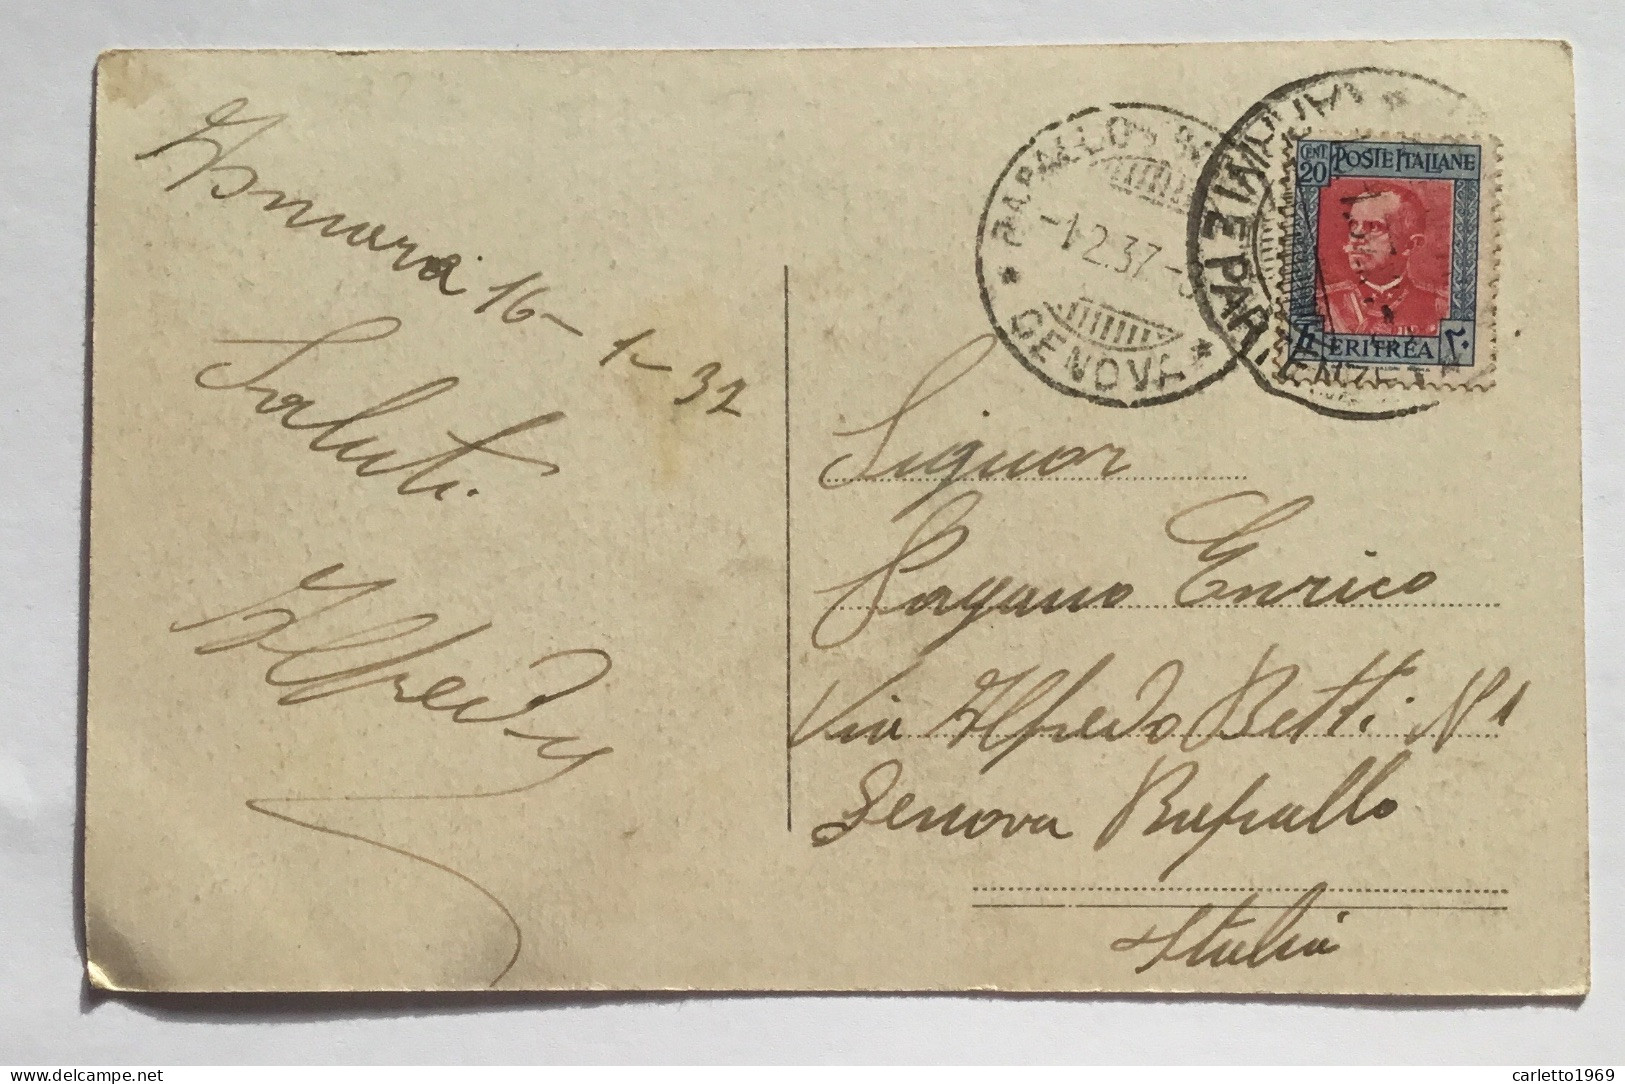 Asmara 16-1-32
Saluti.
Alfredo
RAPALLO
-1.2.37.-
* GENOVA *
ARRIVI E PARTENZE
CENT 20 POSTE ITALIANE
ERITREA ٢٠
Signor
Pagano Enrico
Via Alfredo Betti N 1
Genova Rapallo
Italia
www.delcampe.net
carletto1969